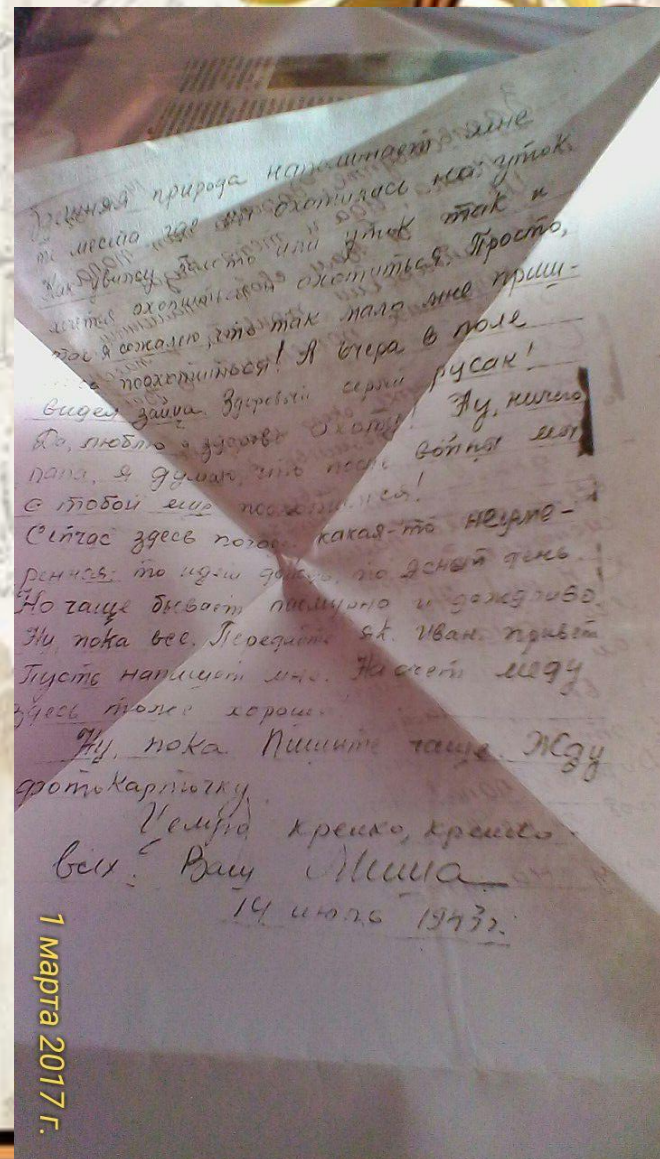 природа напоминает мне
те места, где мы охотились на уток.
Как увижу болото или уток так и
хочется охотиться. Просто,
я сожалею, что так мало мне приш-
поохотиться! Я вчера в поле
видел зайца. Здоровый серый русак!
Да, люблю я здорово охоту. Ну, ничего
папа, я думаю, что после войны мы
с тобой еще поохотимся!
Сейчас здесь погода какая-то неуве-
ренная: то идет дождь, то ясный день.
Но чаще бывает пасмурно и дождливо.
Ну, пока все. Передайте Иван привет
Пусть напишет мне. Насчет меду
здесь тоже хорошо.
Ну, пока. Пишите чаще. Жду
фотокарточку.
крепко, крепко
всех. Ваш Миша
14 июль 1943 г.
1 марта 2017 г.